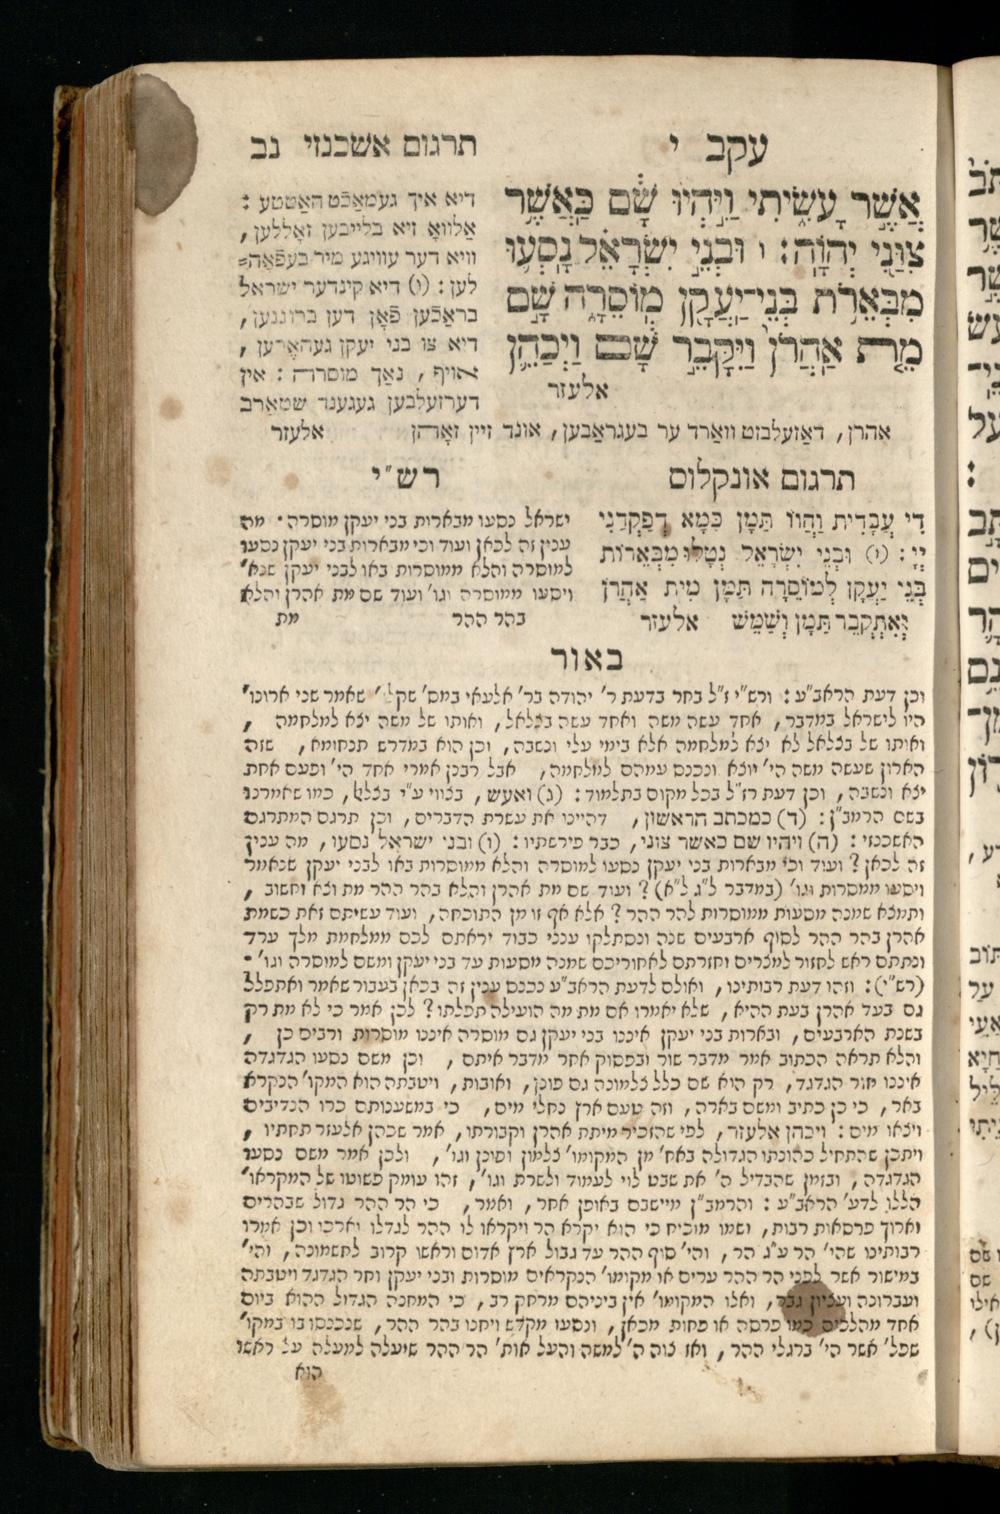 עקב י
תרגום אשכנזי נב
אֲשֶׁר עָשִׂיתִי וַיִּהְיוּ שָׁם כַּאֲשֶׁר
צִוַּנִי יְהוָֹה: ו וּבְנֵי יִשְׂרָאֵל נָסְעוּ
מִבְּאֵרֹת בְּנֵי־יַעֲקָן מוֹסֵרָה שָׁם
מֵת אַהֲרֹן וַיִּקָּבֵר שָׁם וַיְכַהֵן
אלעזר
דיא איך געמאַכֿט האַטטע :
אַלוואָ זיא בלייבען זאָללען,
וויא דער עוויגע מיר בעפֿאָה=
לען : (ו) דיא קינדער ישראל
בראַכֿען פֿאָן דען ברוננען,
דיא צו בני יעקן געהאָרען,
אויף, נאַך מוסרה : אין
דערזעלבען געגענד שטאַרב
אהרן, דאַזעלבזט וואַרד ער בעגראַבען, אונד זיין זאָהן אלעזר
תרגום אונקלוס
דִי עֲבָדִית וַהֲווֹ תַּמָּן כְּמָא דְפַקְּדַנִי
יְיָ : (ו) וּבְנֵי יִשְׂרָאֵל נְטָלוּ מִבְּאֵרוֹת
בְּנֵי יַעֲקָן לְמוֹסֵרָה תַּמָּן מִית אַהֲרֹן
וְאִתְקְבַר תַּמָּן וְשַׁמֵּשׁ אלעזר
רש"י
ישראל נסעו מבארות בני יעקן מוסרה · מה
ענין זה לכאן ועוד וכי מבארות בני יעקן נסעו
למוסרה והלא ממוסרות באו לבני יעקן שנא'
ויסעו ממוסרה וגו' ועוד שם מת אהרן והלא
בהר ההר מת
באור
וכן דעת הראב"ע : ורש"י ז"ל בחר בדעת ר' יהודה בר' אלעאי במס' שקל' שאמר שני ארונו'
היו לישראל במדבר, אחד עשה משה ואחד עשה בצלאל, ואותו של משה יצא למלחמה,
ואותו של בצלאל לא יצא למלחמה אלא בימי עלי ונשבה, וכן הוא במדרש תנחומא, שזה
הארון שעשה משה הי' יוצא ונכנס עמהם למלחמה, אבל רבנן אמרי אחד הי' ופעם אחת
יצא ונשבה, וכן דעת רז"ל בכל מקום בתלמוד : (ג) ואעש, בצווי ע"י בצלאל, כמו שאמרנו
בשם הרמב"ן : (ד) כמכתב הראשון, דהיינו את עשרת הדברים, וכן תרגם המתרגם
האשכנזי : (ה) ויהיו שם כאשר צוני, כבר פירשתיו : (ו) ובני ישראל נסעו, מה ענין
זה לכאן ? ועוד וכי מבארות בני יעקן נסעו למוסרה והלא ממוסרות באו לבני יעקן שנאמר
ויסעו ממסרות וגו' (במדבר ל"ג ל"א) ? ועוד שם מת אהרן והלא בהר ההר מת וצא וחשוב,
ותמצא שמנה מסעות ממוסרות להר ההר ? אלא אף זו מן התוכחה, ועוד עשיתם זאת כשמת
אהרן בהר ההר לסוף ארבעים שנה ונסתלקו ענני כבוד יראתם לכם ממלחמת מלך ערד
ונתתם ראש לחזור למצרים וחזרתם לאחוריכם שמנה מסעות עד בני יעקן ומשם למוסרה וגו' ·
(רש"י) : וזהו דעת רבותינו, ואולם לדעת הראב"ע נכנס ענין זה בכאן בעבור שאמר ואתפלל
גם בעד אהרן בעת ההיא, שלא יאמרו אם מת מה הועילה תפלתו ? לכן אמר כי לא מת רק
בשנת הארבעים, ובארות בני יעקן איננו בני יעקן גם מוסרה איננו מוסרות ורבים כן,
והלא תראה הכתוב אמר מדבר שור ובפסוק אחר מדבר איתם, וכן משם נסעו הגדגדה
איננו חור הגדגד, רק הוא שם כלל צלמונה גם פונן, ואובות, ויטבתה הוא המקו' הנקרא
באר, כי כן כתיב ומשם בארה, וזה טעם ארץ נחלי מים, כי במשענותם כרו הנדיבים
ויצאו מים : ויכהן אלעזר, לפי שהזכיר מיתת אהרן וקבורתו, אמר שכהן אלעזר תחתיו,
ויתכן שהתחיל כהונתו הגדולה באח' מן המקומו' צלמון ופונן וגו', ולכן אמר משם נסעו
הגדגדה, ובזמן שהבדיל ה' את שבט לוי לעמוד ולשרת וגו', זהו עומק פשוטו של המקראו'
הללו לדע' הראב"ע : והרמב"ן מיישבם באופן אחר, ואמר, כי הר ההר גדול שבהרים
וארוך פרסאות רבות, ושמו מוכיח כי הוא יקרא הר ויקראו לו ההר לגדלו וארכו וכן אמרו
רבותינו שהי' הר ע"ג הר, והי' סוף ההר עד גבול ארץ אדום וראשו קרוב לחשמונה, והי'
במישור אשר לפני הר ההר ערים או מקומו' הנקראים מוסרות ובני יעקן וחר הגדגד ויטבתה
ועברונה ועציון גבר, ואלו המקומו' אין ביניהם מרחק רב, כי המחנה הגדול ההוא ביום
אחד מהלכים כמו פרסה או פחות מכאן, ונסעו מקדש ויחנו בהר ההר, שנכנסו בו במקו'
שפל' אשר הי' ברגלי ההר, ואז צוה ה' למשה והעל אות' הר ההר שיעלה למעלה על ראשו
הוא